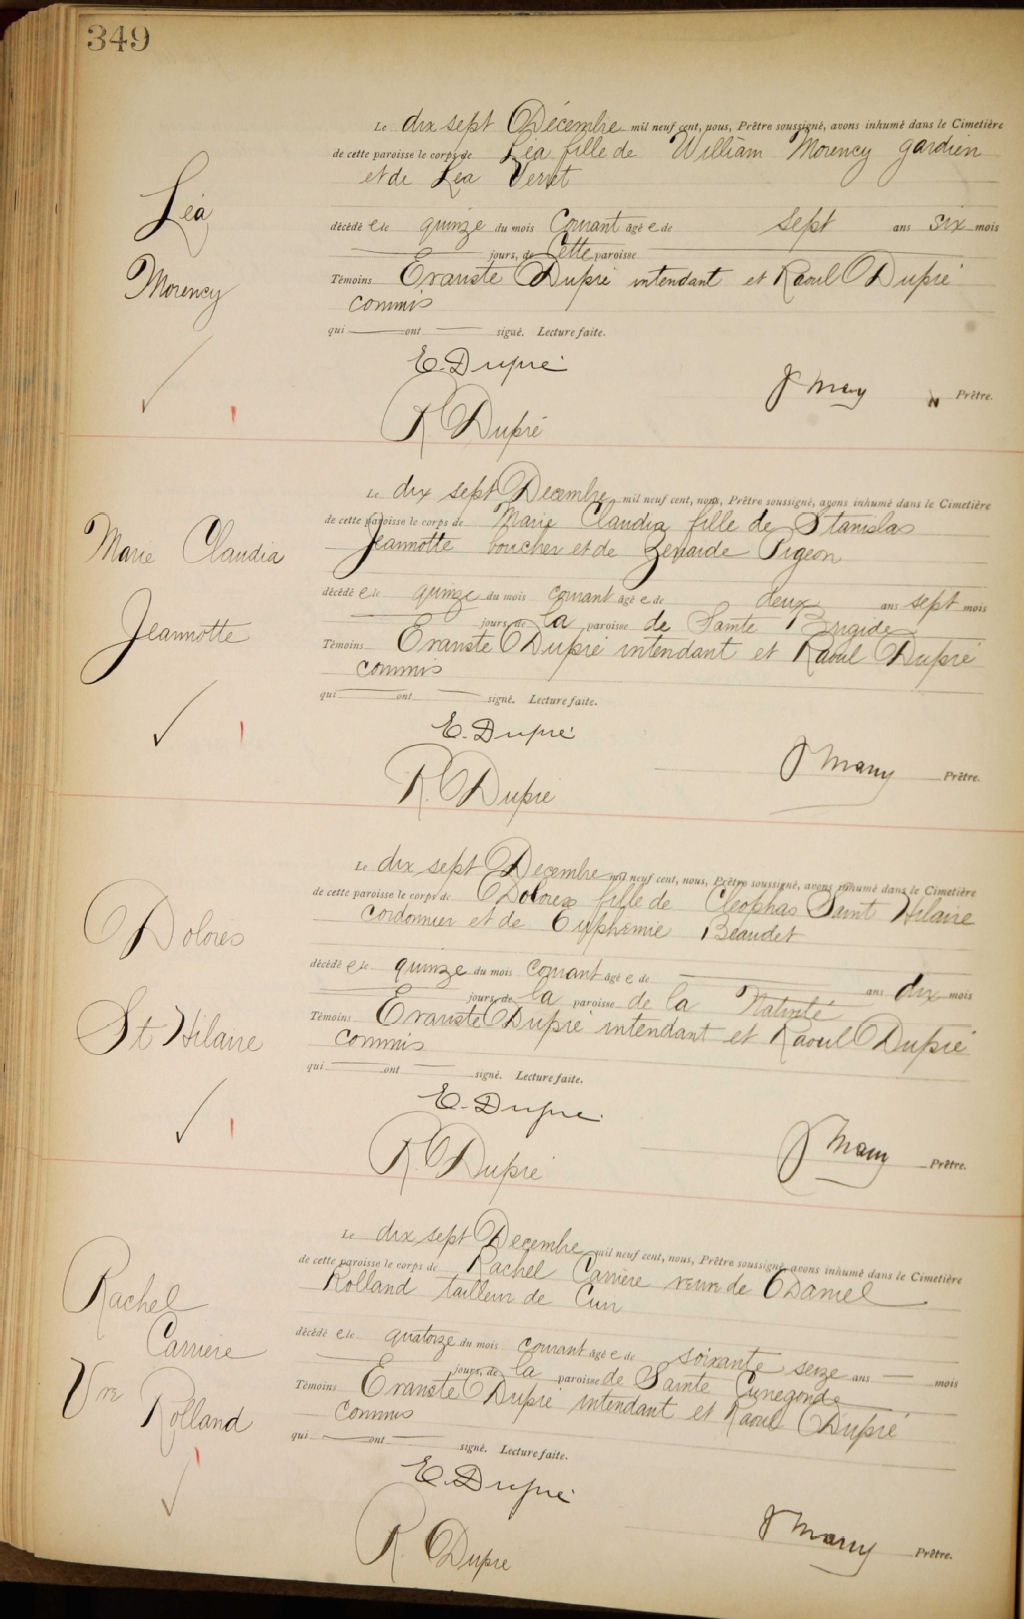 349
Le dix sept Décembre mil neuf cent, nous, Prêtre soussigné, avons inhumé dans le Cimetière
de cette paroisse le corps de Léa fille de William Morency gardien
et de Léa Verret
décédée le quinze du mois Courant âgée de sept ans six mois
jours, de Cette paroisse
Témoins Evariste Dupré intendant et Raoul Dupré
commis
qui ont signé. Lecture faite.
Léa
Morency
E. Dupré
R Dupré
J Mary Prêtre.
Le dix sept Decembre mil neuf cent, nous, Prêtre soussigné, avons inhumé dans le Cimetière
de cette paroisse le corps de Marie Claudia fille de Stanislas
Jeannotte boucher et de Zenaide Pigeon
décédée le quinze du mois courant âgée de deux ans sept mois
jours, de la paroisse de Sainte Brigide
Témoins Evariste Dupré intendant et Raoul Dupré
commis
qui ont signé. Lecture faite.
Marie Claudia
Jeannotte
E. Dupré
R. Dupré
J Mary Prêtre.
Le dix sept Decembre mil neuf cent, nous, Prêtre soussigné, avons inhumé dans le Cimetière
de cette paroisse le corps de Dolores fille de Cleophas Saint Hilaire
cordonnier et de Euphemie Beaudet
décédée le quinze du mois courant âgée de ans dix mois
jours, de la paroisse de la Nativité
Témoins Evariste Dupré intendant et Raoul Dupré
commis
qui ont signé. Lecture faite.
Dolores
St Hilaire
E. Dupré
R. Dupré
J Mary Prêtre.
Le dix sept Decembre mil neuf cent, nous, Prêtre soussigné, avons inhumé dans le Cimetière
de cette paroisse le corps de Rachel Carriere veuve de Daniel
Rolland tailleur de Cuir
décédée le quatorze du mois courant âgée de soixante seize ans — mois
jours, de la paroisse de Sainte Cunegonde
Témoins Evariste Dupré intendant et Raoul Dupré
commis
qui ont signé. Lecture faite.
Rachel
Carriere
Vve
Rolland
E. Dupré
R. Dupre
J Mary Prêtre.